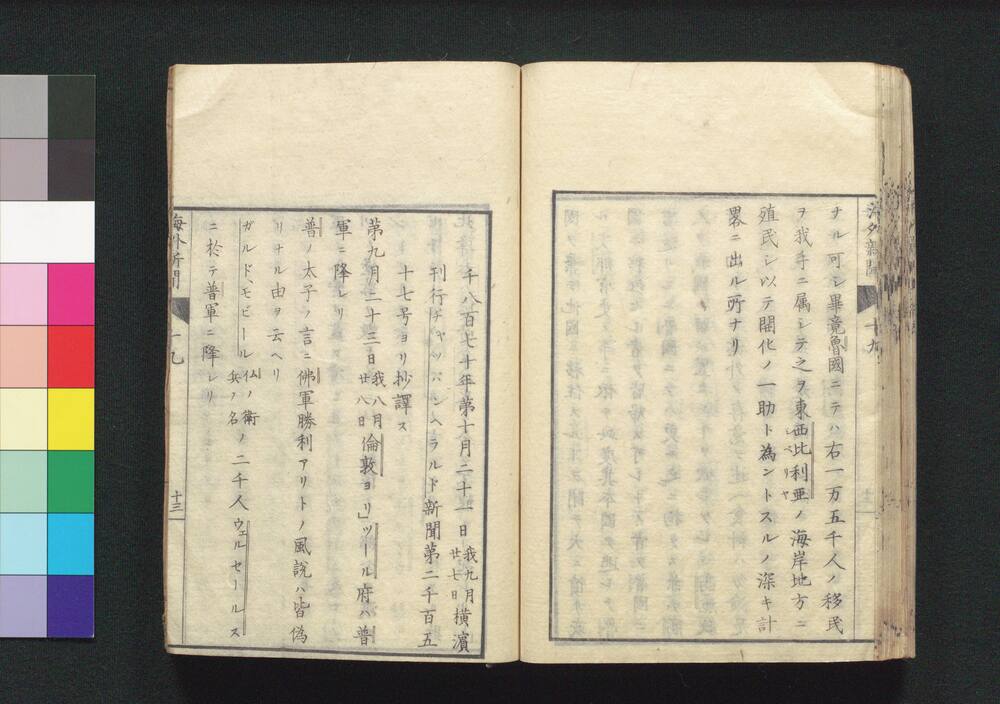 海外新聞
十九
ナル可シ畢竟魯國ニテハ右一万五千人ノ移民
ヲ我手ニ属シテ之ヲ東西比利亜ノ海岸地方ニ
シベリヤ
殖民シ以テ開化ノ一助ト為ントスルノ深キ計
畧ニ出ル所ナリ
千八百七十年第十月二十一日我九月廿七日橫濱
刊行チャッパンヘラルド新聞第二千百五
十七号ヨリ抄譯ス
第九月二十三日我八月廿八日倫敦ヨリ」ツール府ハ普
軍ニ降レリ
普ノ太子ノ言ニ佛軍勝利アリトノ風說ハ皆偽
リナル由ヲ云ヘリ
ガルド、モビール仏ノ衛兵ノ名ノ二千人ウェルセールス
ニ於テ普軍ニ降レリ
海外新聞
十九
十三